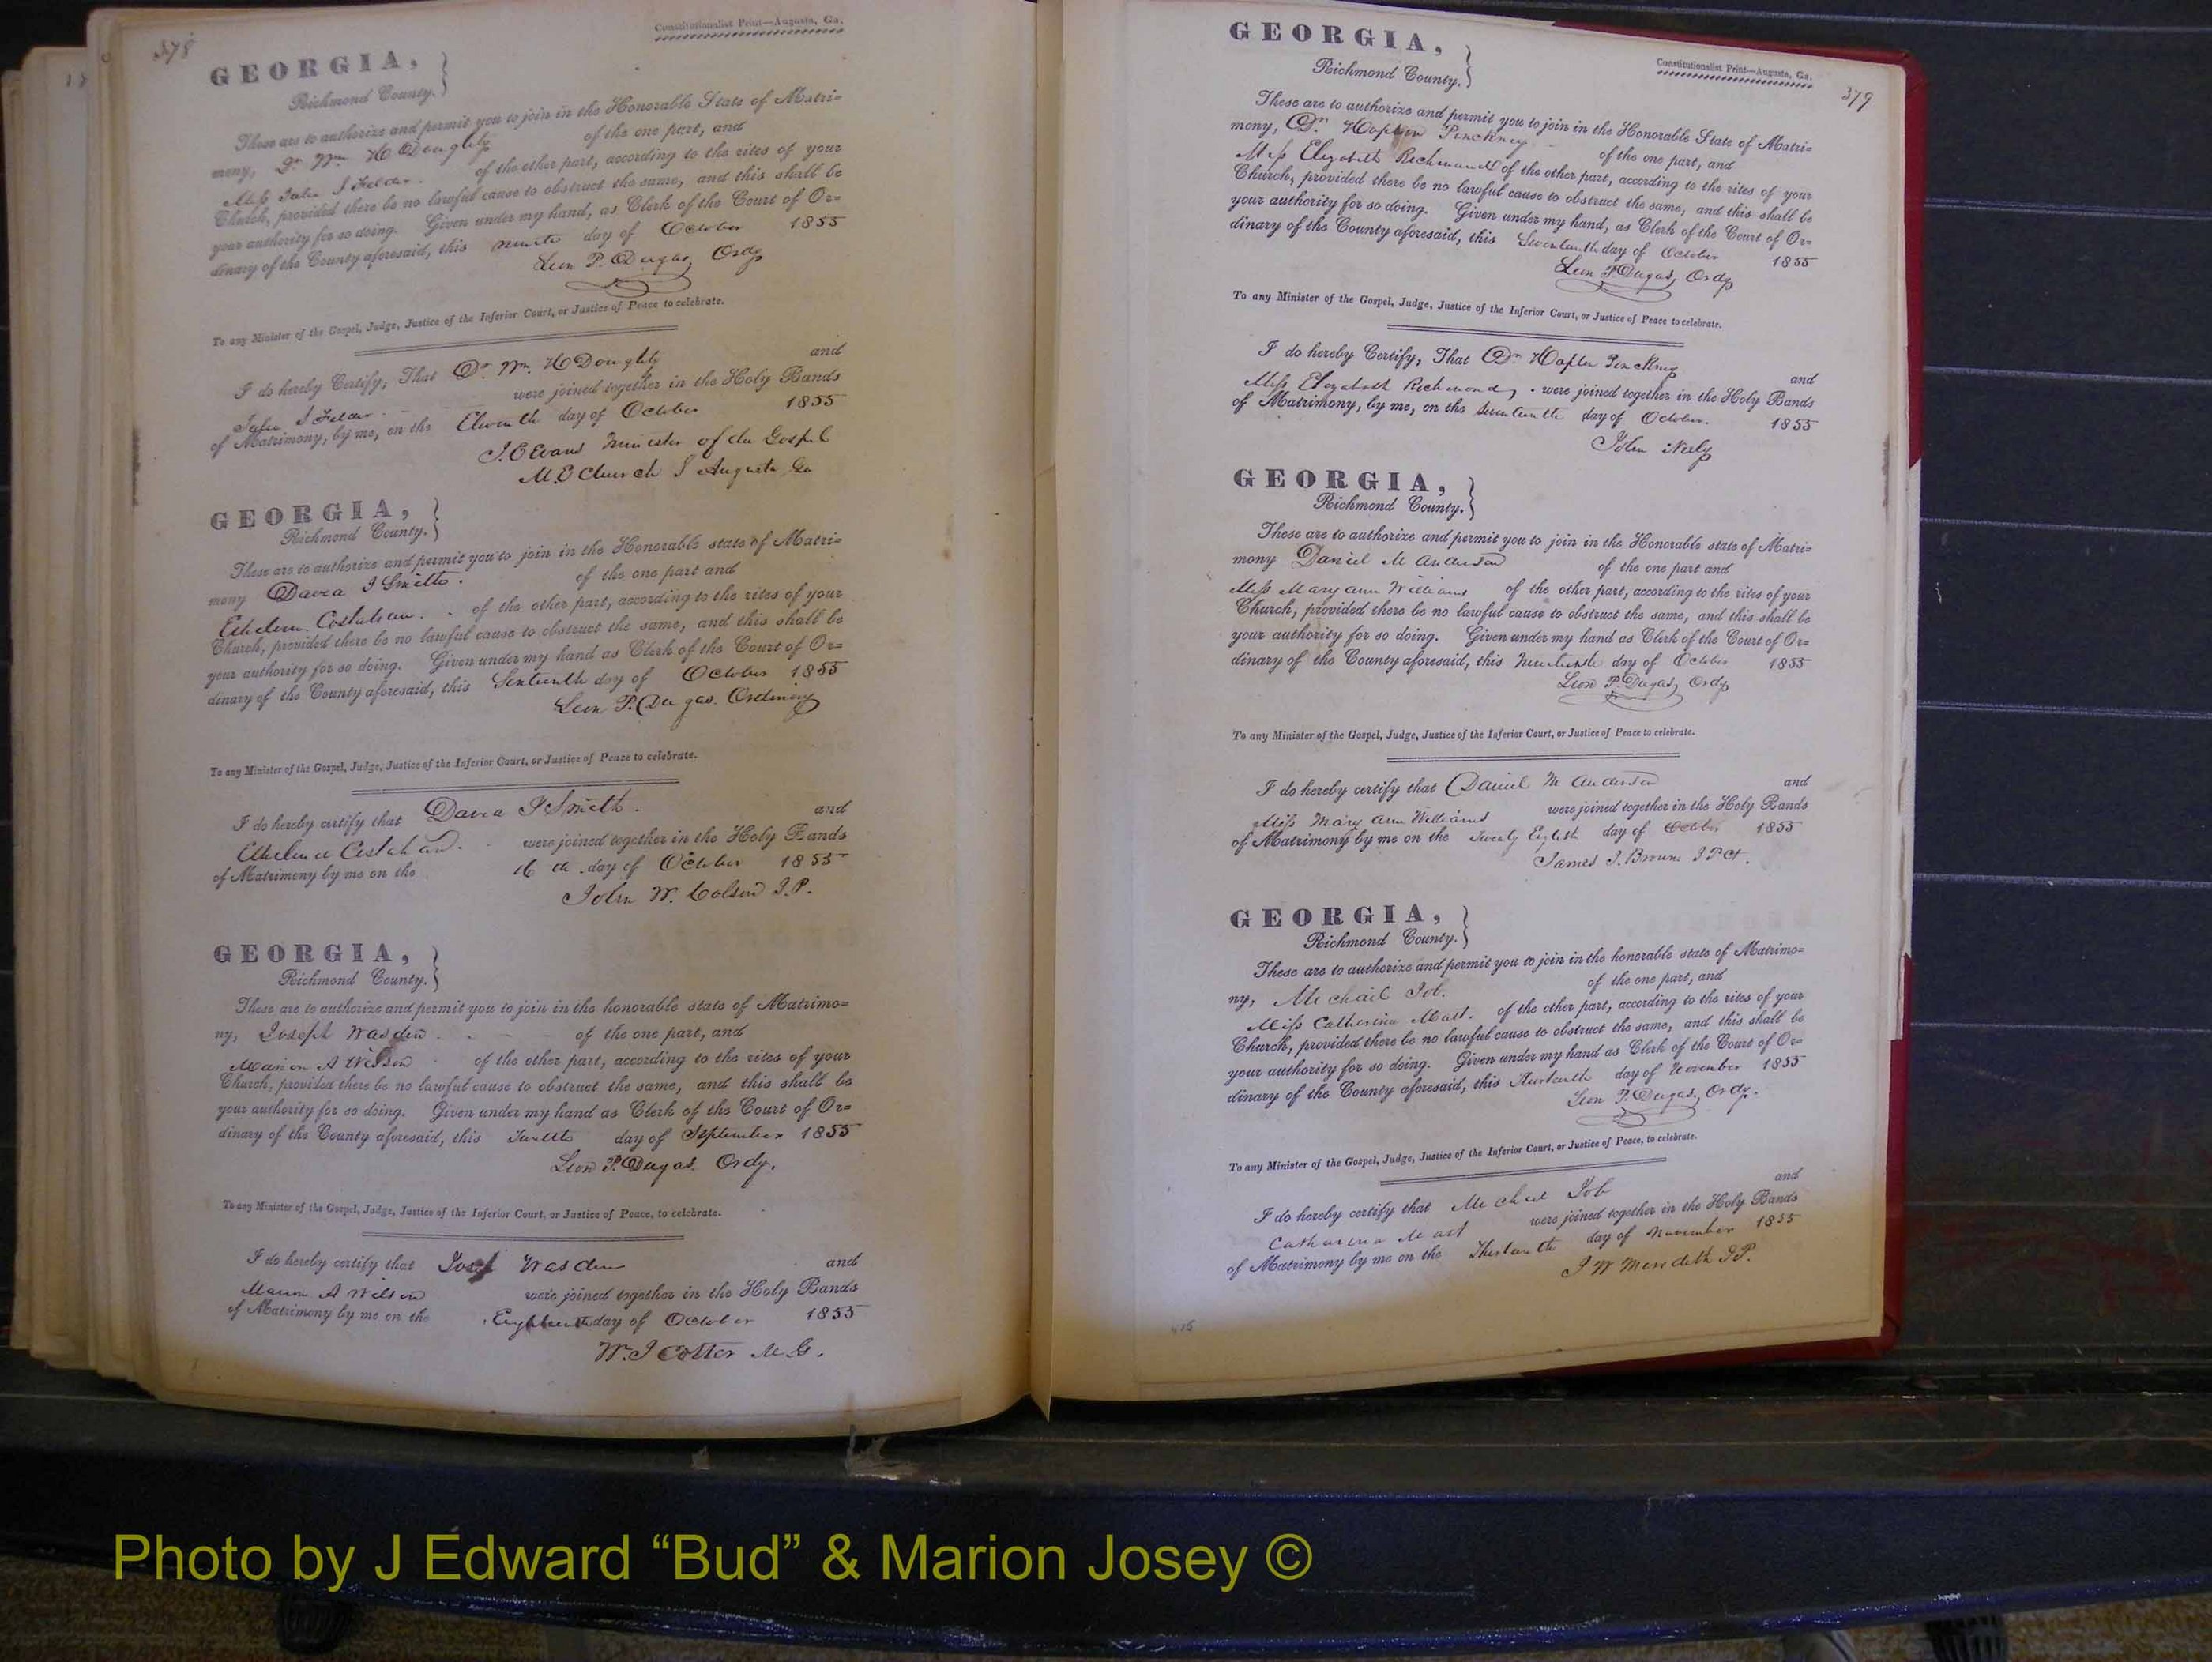 378
Constitutionalist Print—Augusta, Ga.
GEORGIA,
Richmond County.
These are to authorize and permit you to join in the Honorable State of Matri=
mony, Dr Wm H Doughty of the one part, and
Miss Julia S Felder. of the other part, according to the rites of your
Church, provided there be no lawful cause to obstruct the same, and this shall be
your authority for so doing. Given under my hand, as Clerk of the Court of Or=
dinary of the County aforesaid, this day of October 1855
Leon P. Dugas, Ordy
To any Minister of the Gospel, Judge, Justice of the Inferior Court, or Justice of Peace to celebrate.
I do hereby Certify, That Dr Wm. H Doughty and
Julia S Felder were joined together in the Holy Bands
of Matrimony, by me, on the Eleventh day of October 1855
J. E Evans Minister of the Gospel
M. E Church S Augusta Ga
GEORGIA,
Richmond County.
These are to authorize and permit you to join in the Honorable state of Matri=
mony David J Smith. of the one part and
of the other part, according to the rites of your
Church, provided there be no lawful cause to obstruct the same, and this shall be
your authority for so doing. Given under my hand as Clerk of the Court of Or=
dinary of the County aforesaid, this day of October 1855
Leon P. Dugas. Ordinary
To any Minister of the Gospel, Judge, Justice of the Inferior Court, or Justice of Peace to celebrate.
I do hereby certify that David J Smith. and
were joined together in the Holy Bands
of Matrimony by me on the 16 th day of October 1855
John W. Colson J. P.
GEORGIA,
Richmond County.
These are to authorize and permit you to join in the honorable state of Matrimo=
ny, Joseph Wasden of the one part, and
Marion A Wilson of the other part, according to the rites of your
Church, provided there be no lawful cause to obstruct the same, and this shall be
your authority for so doing. Given under my hand as Clerk of the Court of Or=
dinary of the County aforesaid, this day of September 1855
Leon P. Dugas. Ordy.
To any Minister of the Gospel, Judge, Justice of the Inferior Court, or Justice of Peace, to celebrate.
I do hereby certify that Wasden and
Marion A Wilson were joined together in the Holy Bands
of Matrimony by me on the Eighteenth day of October 1855
W. J Cotter M. G.
379
Constitutionalist Print—Augusta, Ga.
GEORGIA,
Richmond County.
These are to authorize and permit you to join in the Honorable State of Matri=
mony, Dr Pinckney of the one part, and
Miss Elizabeth Richmond of the other part, according to the rites of your
Church, provided there be no lawful cause to obstruct the same, and this shall be
your authority for so doing. Given under my hand, as Clerk of the Court of Or=
dinary of the County aforesaid, this Seventeenth day of October 1855
Leon P Dugas, Ordy
To any Minister of the Gospel, Judge, Justice of the Inferior Court, or Justice of Peace to celebrate.
I do hereby Certify, That Dr Pinckney and
Miss Elizabeth Richmond, were joined together in the Holy Bands
of Matrimony, by me, on the Seventeenth day of October. 1855
John Neely
GEORGIA,
Richmond County.
These are to authorize and permit you to join in the Honorable state of Matri=
mony Daniel M Anderson of the one part and
Miss Mary Ann Williams of the other part, according to the rites of your
Church, provided there be no lawful cause to obstruct the same, and this shall be
your authority for so doing. Given under my hand as Clerk of the Court of Or=
dinary of the County aforesaid, this day of October 1855
Leon P. Dugas, Ordy
To any Minister of the Gospel, Judge, Justice of the Inferior Court, or Justice of Peace to celebrate.
I do hereby certify that Daniel M Anderson and
Miss Mary Ann Williams were joined together in the Holy Bands
of Matrimony by me on the Twenty Eighth day of October 1855
James J. Brown
GEORGIA,
Richmond County.
These are to authorize and permit you to join in the honorable state of Matrimo=
ny, Michail Job. of the one part, and
Miss Catherina Mast. of the other part, according to the rites of your
Church, provided there be no lawful cause to obstruct the same, and this shall be
your authority for so doing. Given under my hand as Clerk of the Court of Or=
dinary of the County aforesaid, this day of November 1855
Leon P. Dugas, Ordy.
To any Minister of the Gospel, Judge, Justice of the Inferior Court, or Justice of Peace, to celebrate.
I do hereby certify that Job and
Catharina Mast were joined together in the Holy Bands
of Matrimony by me on the Thirteenth day of November 1855
J W Meredith J.P.
Photo by J Edward “Bud” & Marion Josey ©